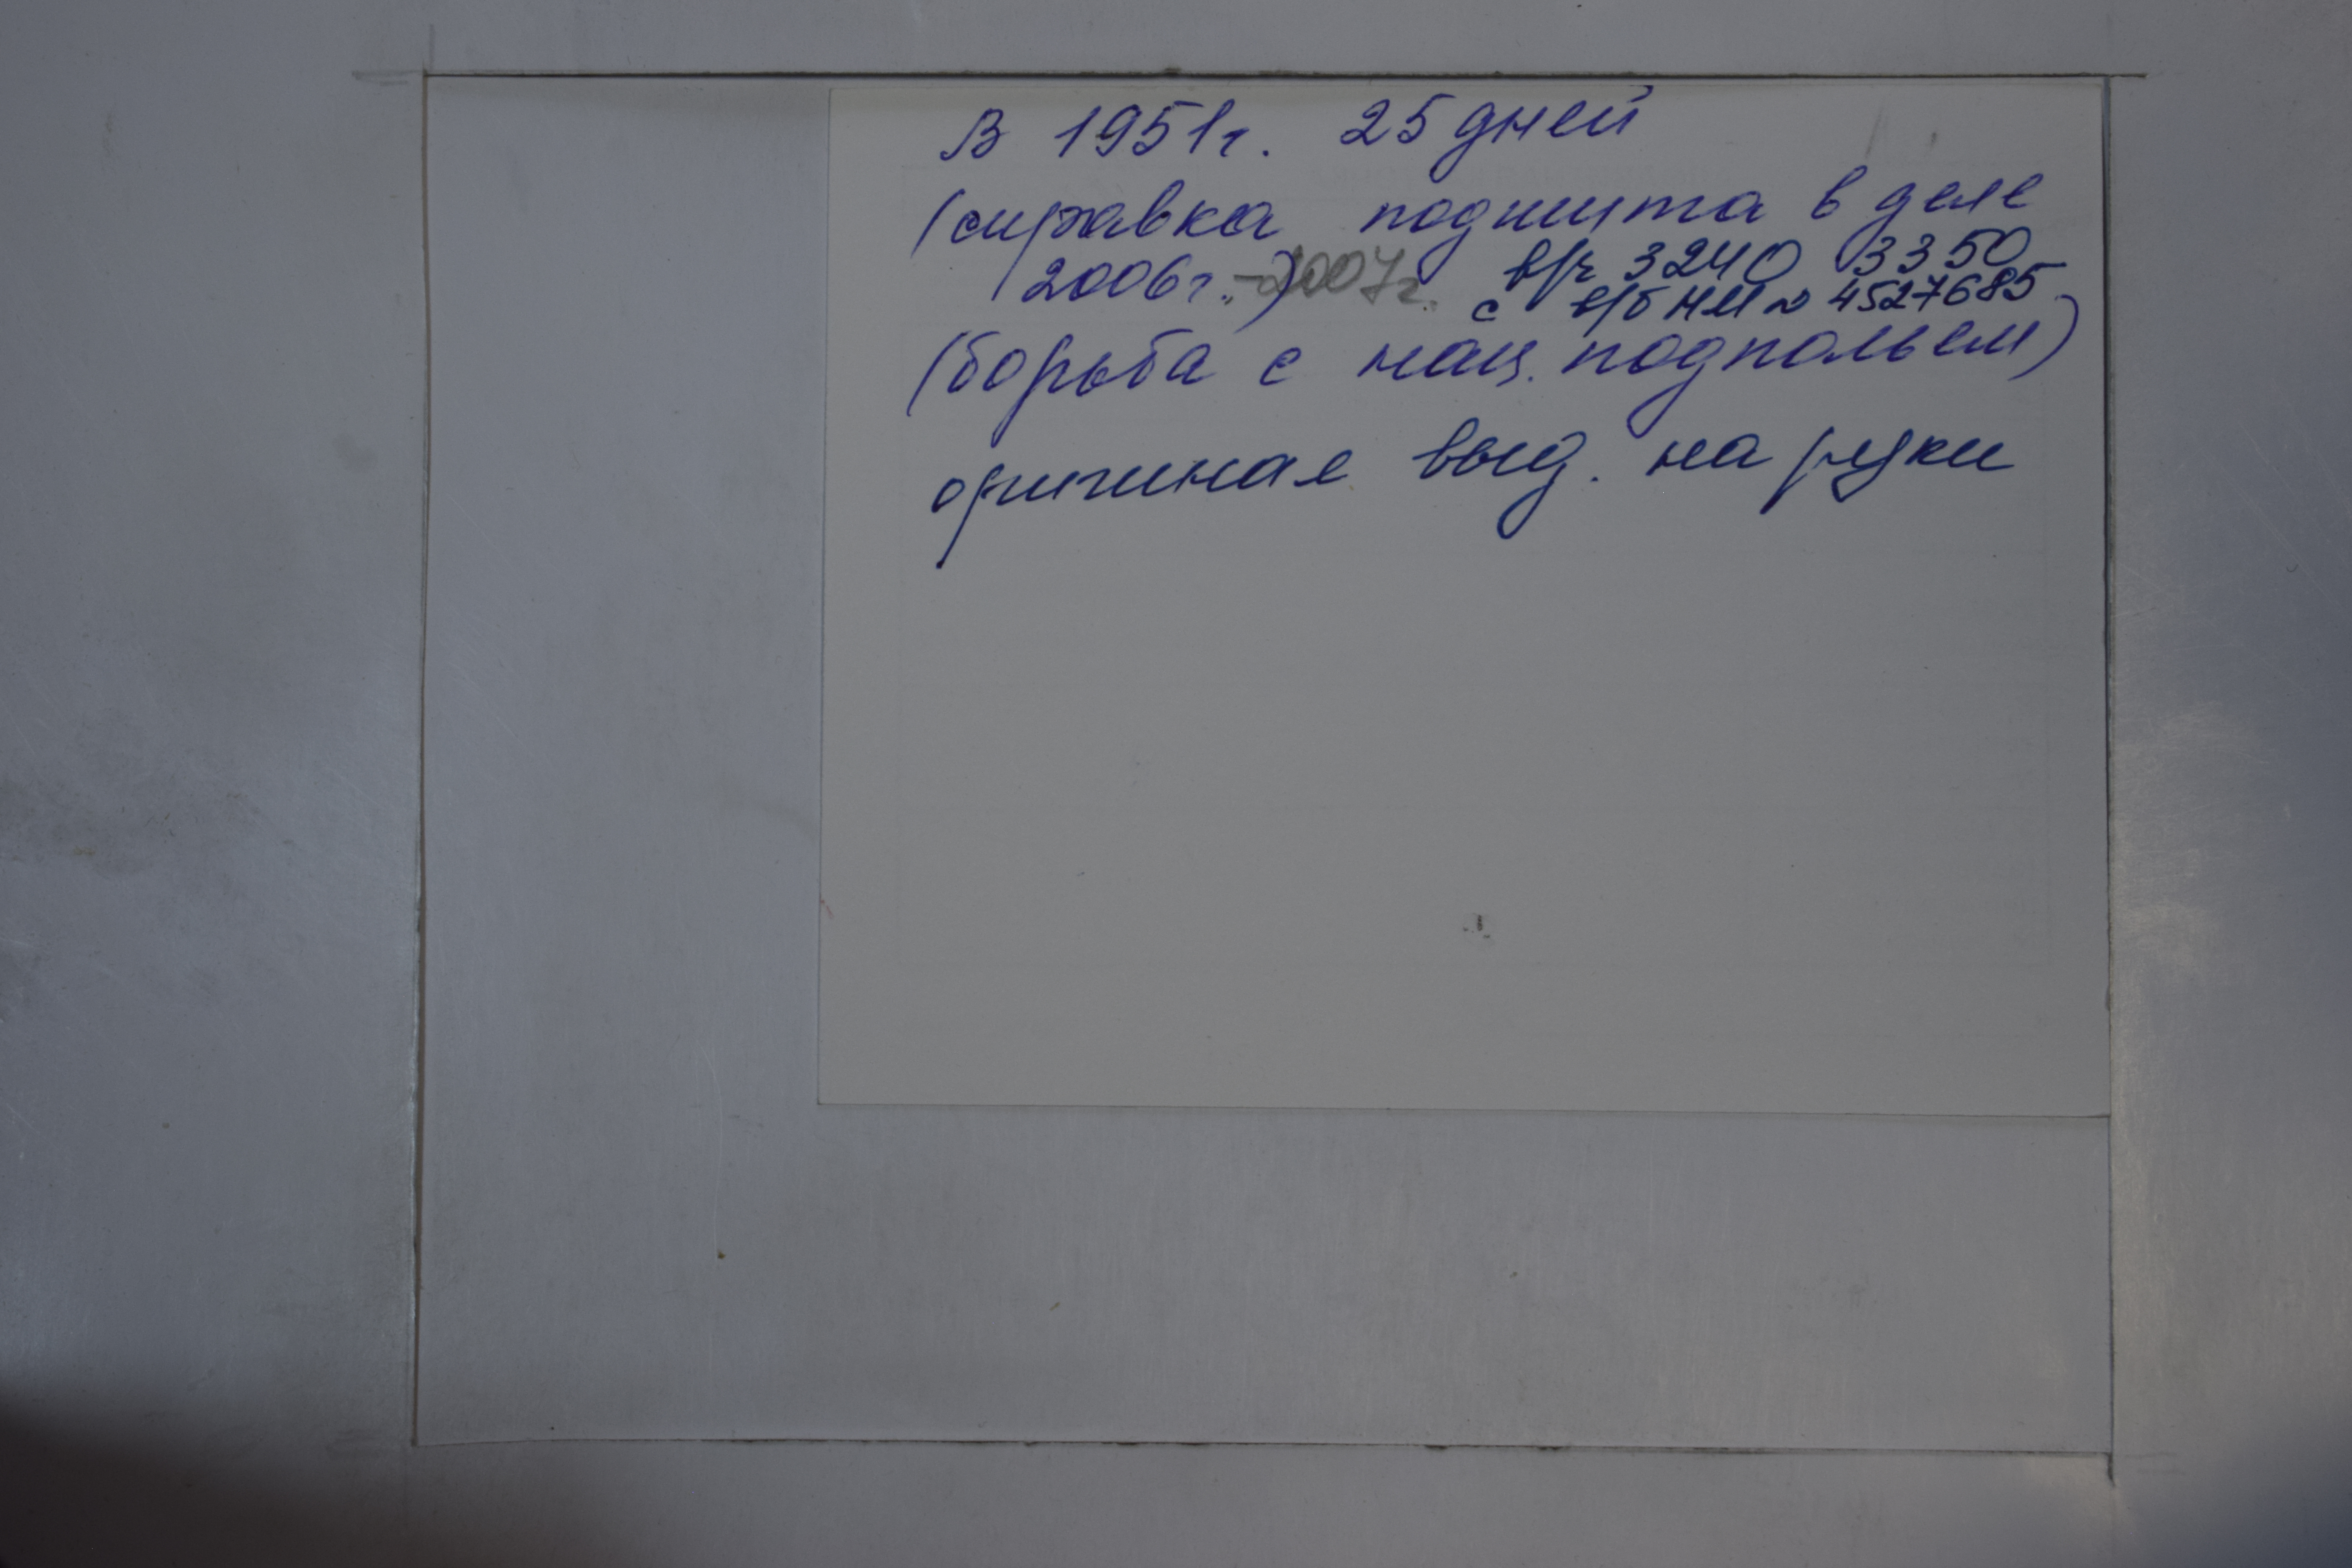 В 1951г. 25 дней
(справка подшита в деле
2006г.) -2007г. в/ч 3240 3350
с в/б НИ № 4527685
(борьба с нац. подпольем)
оригинал выд. на руки